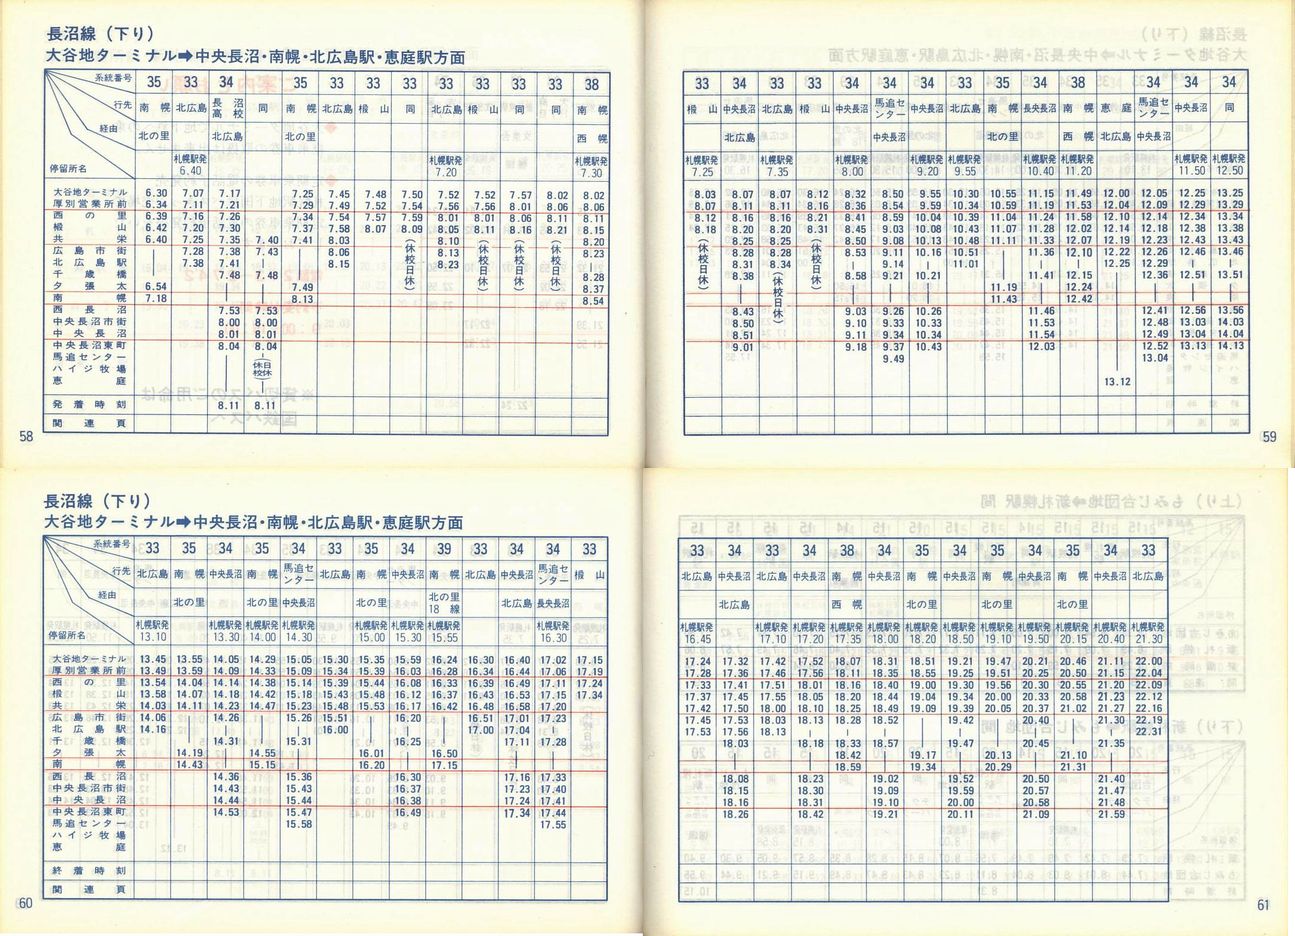 長沼線（下り）
大谷地ターミナル➡中央長沼・南幌・北広島駅・恵庭駅方面
系統番号 35 33 34 35 33 33 33 33 33 33 33 38
行先 南幌 北広島 長沼高校 同 南幌 北広島 椴山 同 北広島 椴山 同 同 南幌
経由 北の里 北広島 北の里 西幌
停留所名 札幌駅発 6.40 札幌駅発 7.20 札幌駅発 7.30
大谷地ターミナル 6.30 7.07 7.17 7.25 7.45 7.48 7.50 7.52 7.52 7.57 8.02 8.02
厚別営業所前 6.34 7.11 7.21 7.29 7.49 7.52 7.54 7.56 7.56 8.01 8.06 8.06
西の里 6.39 7.16 7.26 7.34 7.54 7.57 7.59 8.01 8.01 8.06 8.11 8.11
椴山 6.42 7.20 7.30 7.37 7.58 8.07 8.09 8.05 8.11 8.16 8.21 8.15
共栄 6.40 7.25 7.35 7.40 7.41 8.03 8.10 8.20
広島市街 7.28 7.38 7.43 8.06 8.13 8.23
北広島駅 7.38 7.41 8.15 8.23
千歳橋 7.48 7.48 8.28
夕張太 6.54 7.49 8.37
南幌 7.18 8.13 8.54
西長沼 7.53 7.53
中央長沼市街 8.00 8.00
中央長沼 8.01 8.01
中央長沼東町 8.04 8.04
馬追センター
ハイジ牧場
恵庭
発着時刻 8.11 8.11
関連頁
（休校日休）
58
33 34 33 33 34 34 34 33 35 34 38 33 34 34 34
椴山 中央長沼 北広島 椴山 中央長沼 馬追センター 中央長沼 北広島 南幌 長央長沼 南幌 恵庭 馬追センター 中央長沼 同
北広島 中央長沼 北の里 西幌 北広島 中央長沼
札幌駅発 7.25 札幌駅発 7.35 札幌駅発 8.00 札幌駅発 9.20 札幌駅発 9.55 札幌駅発 10.40 札幌駅発 11.20 札幌駅発 11.50 札幌駅発 12.50
8.03 8.07 8.07 8.12 8.32 8.50 9.55 10.30 10.55 11.15 11.49 12.00 12.05 12.25 13.25
8.07 8.11 8.11 8.16 8.36 8.54 9.59 10.34 10.59 11.19 11.53 12.04 12.09 12.29 13.29
8.12 8.16 8.16 8.21 8.41 8.59 10.04 10.39 11.04 11.24 11.58 12.10 12.14 12.34 13.34
8.18 8.20 8.20 8.31 8.45 9.03 10.08 10.43 11.07 11.28 12.02 12.14 12.18 12.38 13.38
8.25 8.25 8.50 9.08 10.13 10.48 11.11 11.33 12.07 12.19 12.23 12.43 13.43
8.28 8.28 8.53 9.11 10.16 10.51 11.36 12.10 12.22 12.26 12.46 13.46
8.31 8.34 9.14 11.01 12.25 12.29
8.38 8.58 9.21 10.21 11.41 12.15 12.36 12.51 13.51
11.19 12.24
11.43 12.42
8.43 9.03 9.26 10.26 11.46 12.41 12.56 13.56
8.50 9.10 9.33 10.33 11.53 12.48 13.03 14.03
8.51 9.11 9.34 10.34 11.54 12.49 13.04 14.04
9.01 9.18 9.37 10.43 12.03 12.52 13.13 14.13
9.49 13.04
13.12
（休校日休）
59
長沼線（下り）
大谷地ターミナル➡中央長沼・南幌・北広島駅・恵庭駅方面
系統番号 33 35 34 35 34 33 35 34 39 33 34 34 33
行先 北広島 南幌 中央長沼 南幌 馬追センター 北広島 南幌 中央長沼 南幌 北広島 中央長沼 馬追センター 椴山
経由 北の里 北の里 中央長沼 北の里 北の里18線 北広島 長央長沼
停留所名 札幌駅発 13.10 札幌駅発 13.30 札幌駅発 14.00 札幌駅発 14.30 札幌駅発 15.00 札幌駅発 15.30 札幌駅発 15.55 札幌駅発 16.30
大谷地ターミナル 13.45 13.55 14.05 14.29 15.05 15.30 15.35 15.59 16.24 16.30 16.40 17.02 17.15
厚別営業所前 13.49 13.59 14.09 14.33 15.09 15.34 15.39 16.03 16.28 16.34 16.44 17.06 17.19
西の里 13.54 14.04 14.14 14.38 15.14 15.39 15.44 16.08 16.33 16.39 16.49 17.11 17.24
椴山 13.58 14.07 14.18 14.42 15.18 15.43 15.48 16.12 16.37 16.43 16.53 17.15 17.34
共栄 14.03 14.11 14.23 14.47 15.23 15.48 15.53 16.17 16.42 16.48 16.58 17.20
広島市街 14.06 14.26 15.26 15.51 16.20 16.51 17.01 17.23
北広島駅 14.16 16.00 17.00 17.04
千歳橋 14.31 15.31 16.25 17.11 17.28
夕張太 14.19 14.55 16.01 16.50
南幌 14.43 15.15 16.20 17.15
西長沼 14.36 15.36 16.30 17.16 17.33
中央長沼市街 14.43 15.43 16.37 17.23 17.40
中央長沼 14.44 15.44 16.38 17.24 17.41
中央長沼東町 14.53 15.47 16.49 17.34 17.44
馬追センター 15.58 17.55
ハイジ牧場
恵庭
終着時刻
関連頁
60
33 34 33 34 38 34 35 34 35 34 35 34 33
北広島 中央長沼 北広島 中央長沼 南幌 中央長沼 南幌 中央長沼 南幌 中央長沼 南幌 中央長沼 北広島
北広島 西幌 北の里 北の里 北の里
札幌駅発 16.45 札幌駅発 17.10 札幌駅発 17.20 札幌駅発 17.35 札幌駅発 18.00 札幌駅発 18.20 札幌駅発 18.50 札幌駅発 19.10 札幌駅発 19.50 札幌駅発 20.15 札幌駅発 20.40 札幌駅発 21.30
17.24 17.32 17.42 17.52 18.07 18.31 18.51 19.21 19.47 20.21 20.46 21.11 22.00
17.28 17.36 17.46 17.56 18.11 18.35 18.55 19.25 19.51 20.25 20.50 21.15 22.04
17.33 17.41 17.51 18.01 18.16 18.40 19.00 19.30 19.56 20.30 20.55 21.20 22.09
17.37 17.45 17.55 18.05 18.20 18.44 19.04 19.34 20.00 20.33 20.58 21.23 22.12
17.42 17.50 18.00 18.10 18.25 18.49 19.09 19.39 20.05 20.37 21.02 21.27 22.16
17.45 17.53 18.03 18.13 18.28 18.52 19.42 20.40 21.30 22.19
17.53 17.56 18.13 22.31
18.03 18.18 18.33 18.57 19.47 20.45 21.35
18.42 19.17 20.13 21.10
18.59 19.34 20.29 21.31
18.08 18.23 19.02 19.52 20.50 21.40
18.15 18.30 19.09 19.59 20.57 21.47
18.16 18.31 19.10 20.00 20.58 21.48
18.26 18.42 19.21 20.11 21.09 21.59
61